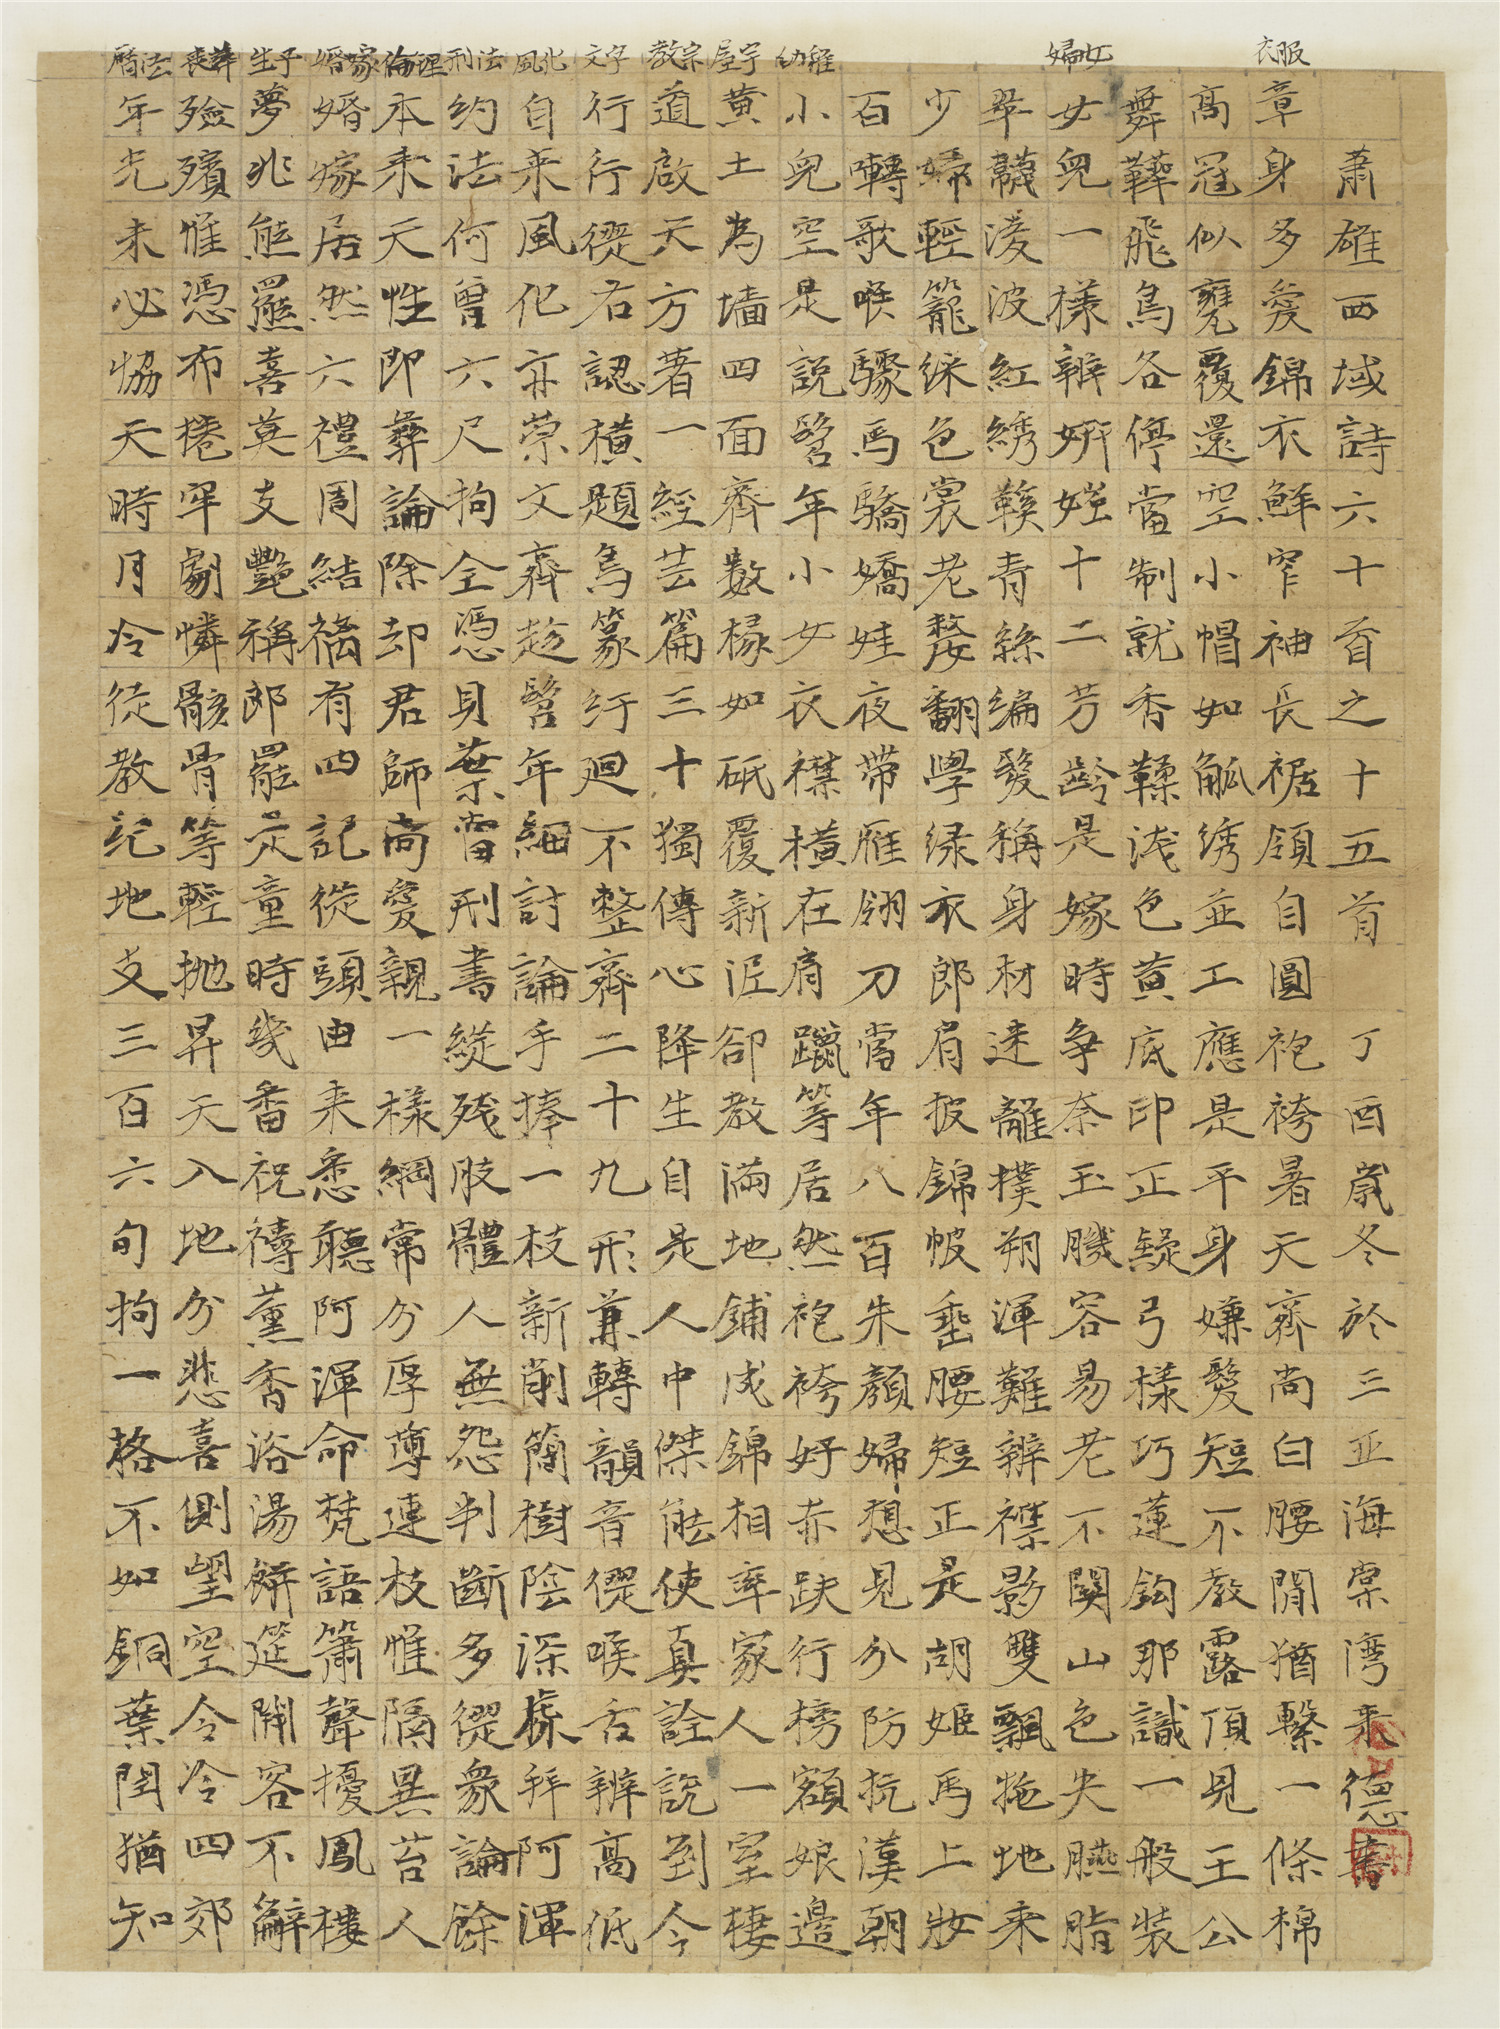 衣服
婦女
幼稚
屋宇
教宗
文字
風化
刑法
倫理
婚嫁
生子
喪葬
曆法
蕭雄西域詩六十首之十五首 丁酉歲冬於三亞海棠灣来德書
章身多愛錦衣鮮窄袖長裾領自圓袍袴暑天齊尚白腰間猶繫一條棉
高冠似甕覆還空小帽如觚绣並工應是平身嫌髮短不教露頂見王公
舞鞾飛鳥各停當制就香鞣浅色黄底印正疑弓樣巧蓮鈎那識一般裝
女兒一樣辨妍媸十二芳齡是嫁時争奈玉容易老不関山色失臙脂
翠韈淩波紅綉鞵青絲编髮稱身材迷離撲朔渾難辨襟影雙飄拖地来
少婦輕籠綵色裳老嫠翻學緑衣郎肩披錦帔垂腰短正是胡姬馬上妝
百囀歌喉驟馬驕嬌娃夜帶雁翎刀當年八百朱顏婦想見分防抗漢朝
小兒空是説髫年小女衣襟横在肩躐等居然袍袴好赤趺行榜額娘邊
黄土為墻四面齊數椽如砥覆新泥卻教滿地鋪成錦相率家人一室棲
道啟天方著一經芸篇三十獨傳心降生自是人中傑能使真詮説到今
行行從右認横題鳥篆紆廻不整齊二十九形兼轉韻音從喉舌辨高低
自来風化亦崇文齊趁髫年細討論手捧一枝新削簡樹陰深處拜阿渾
約法何曾六尺拘全憑貝葉當刑書縱殘肢體人無怨判斷多從衆論餘
本来天性即彝論除却君師尚愛親一樣綱常分厚薄連枝惟隔異苔人
婚嫁居然六禮周結褵有四記從頭由来悉聽阿渾命梵語簫聲擾鳳樓
夢兆熊羆喜莫支艷稱郎罷定童時幾番祝禱薰香浴湯餅筵開客不辭
殮殯惟憑布棬牢劇憐骸骨等輕抛昇天入地分悲喜側望空令冷四郊
年光未必協天時月令從教紀地支三百六旬拘一格不如銅葉閏猶知